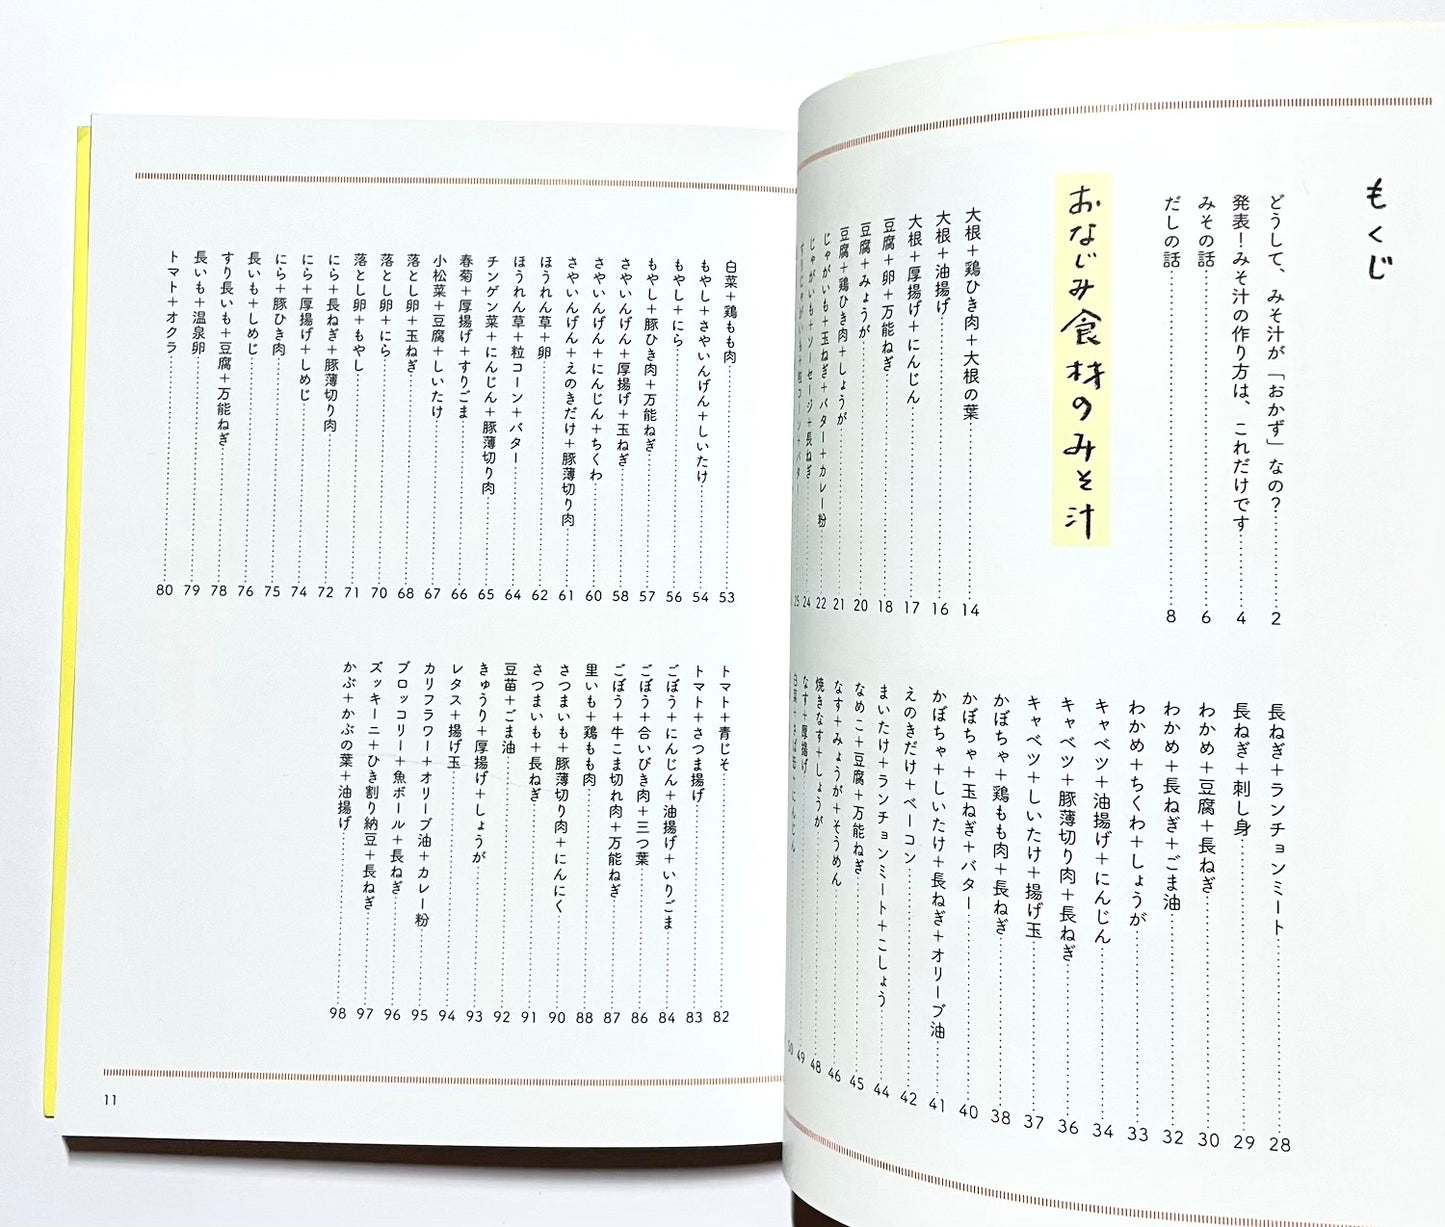 もくじ
どうして、みそ汁が「おかず」なの?……2
発表!みそ汁の作り方は、これだけです……4
みその話……6
だしの話……8
おなじみ食材のみそ汁
大根+鶏ひき肉+大根の葉……14
大根+油揚げ……16
大根+厚揚げ+にんじん……17
豆腐+卵+万能ねぎ……18
豆腐+みょうが……20
豆腐+鶏ひき肉+しょうが……21
じゃがいも+玉ねぎ+バター+カレー粉……22
じゃがいも+ソーセージ+長ねぎ……24
25
長ねぎ+ランチョンミート……28
長ねぎ+刺し身……29
わかめ+豆腐+長ねぎ……30
わかめ+長ねぎ+ごま油……32
わかめ+ちくわ+しょうが……33
キャベツ+油揚げ+にんじん……34
キャベツ+豚薄切り肉+長ねぎ……36
キャベツ+しいたけ+揚げ玉……37
かぼちゃ+鶏もも肉+長ねぎ……38
かぼちゃ+玉ねぎ+バター……40
かぼちゃ+しいたけ+長ねぎ+オリーブ油……41
えのきだけ+ベーコン……42
まいたけ+ランチョンミート+こしょう……44
なめこ+豆腐+万能ねぎ……45
なす+みょうが+そうめん……46
焼きなす+しょうが……48
なす+厚揚げ……49
50
白菜+鶏もも肉……53
もやし+さやいんげん+しいたけ……54
もやし+にら……56
もやし+豚ひき肉+万能ねぎ……57
さやいんげん+厚揚げ+玉ねぎ……58
さやいんげん+にんじん+ちくわ……60
さやいんげん+えのきだけ+豚薄切り肉……61
ほうれん草+卵……62
ほうれん草+粒コーン+バター……64
チンゲン菜+にんじん+豚薄切り肉……65
春菊+厚揚げ+すりごま……66
小松菜+豆腐+しいたけ……67
落とし卵+玉ねぎ……68
落とし卵+にら……70
落とし卵+もやし……71
にら+長ねぎ+豚薄切り肉……72
にら+厚揚げ+しめじ……74
にら+豚ひき肉……75
長いも+しめじ……76
すり長いも+豆腐+万能ねぎ……78
長いも+温泉卵……79
トマト+オクラ……80
トマト+青じそ……82
トマト+さつま揚げ……83
ごぼう+にんじん+油揚げ+いりごま……84
ごぼう+合いびき肉+三つ葉……86
ごぼう+牛こま切れ肉+万能ねぎ……87
里いも+鶏もも肉……88
さつまいも+豚薄切り肉+にんにく……90
さつまいも+長ねぎ……91
豆苗+ごま油……92
きゅうり+厚揚げ+しょうが……93
レタス+揚げ玉……94
カリフラワー+オリーブ油+カレー粉……95
ブロッコリー+魚ボール+長ねぎ……96
ズッキーニ+ひき割り納豆+長ねぎ……97
かぶ+かぶの葉+油揚げ……98
11